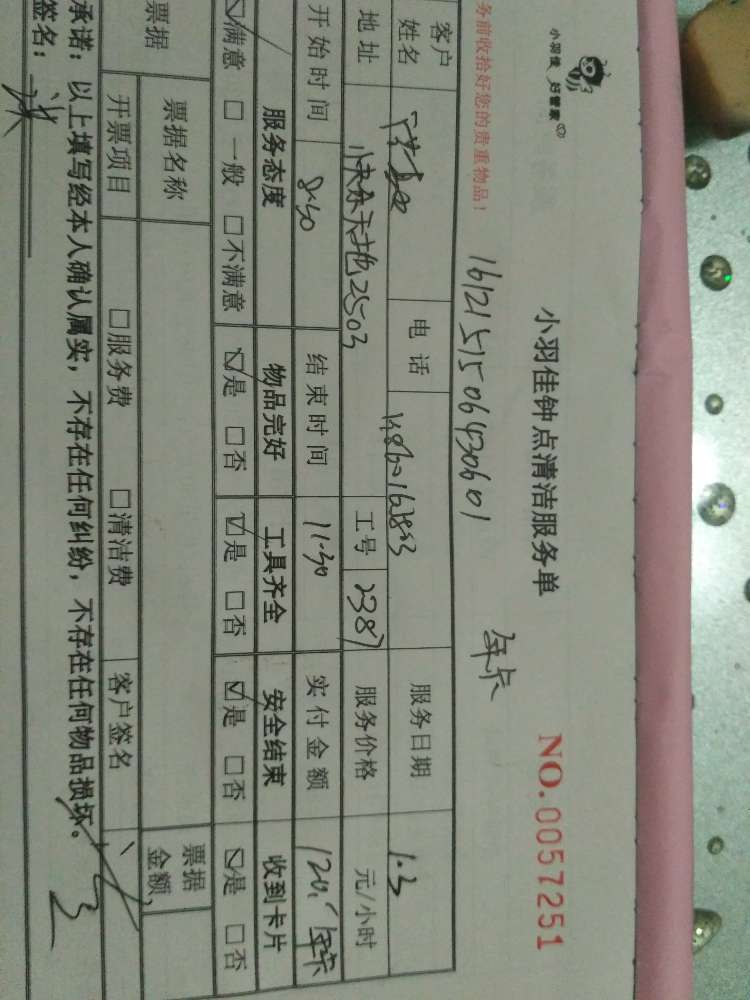 小羽佳 好管家
务前收拾好您的贵重物品!
小羽佳钟点清洁服务单
NO.0057251
1612151506430601 年卡
客户姓名 电话 服务日期 1.3
地址 快乐天地2503 工号 2387 服务价格 元/小时
开始时间 8:30 结束时间 11:30 实付金额 120. 年卡
服务态度 物品完好 工具齐全 安全结束 收到卡片
☑满意 □一般 □不满意 ☑是 □否 ☑是 □否 ☑是 □否 ☑是 □否
票据 票据名称 票据金额
开票项目 □服务费 □清洁费 客户签名
承诺:以上填写经本人确认属实,不存在任何纠纷,不存在任何物品损坏。
签名: